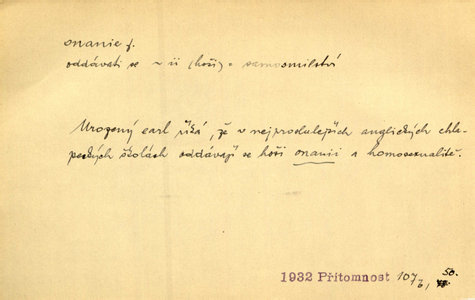 onanie f.
oddávati se ~ii (hoši) = samosmilství
Urozený earl říká, že v nejproslulejších anglických chla-
peckých školách oddávají se hoši onanii a homosexualitě.
50.
1932 Přítomnost 107/